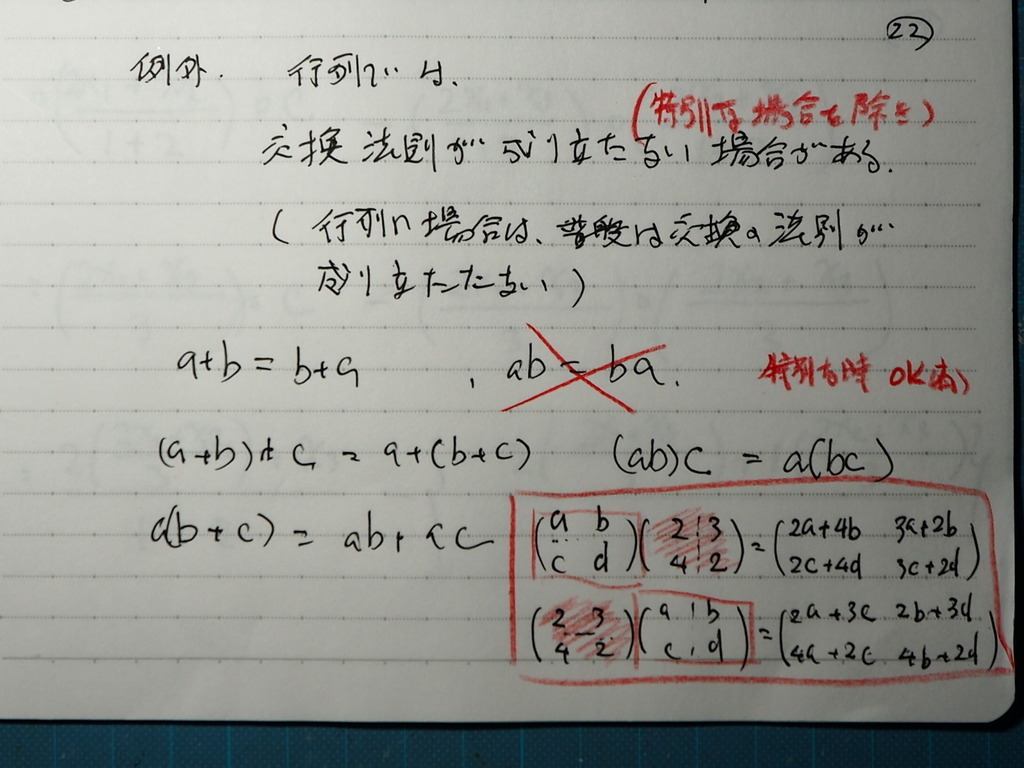 22
例外. 行列では、
(特別な場合を除き)
交換法則が成り立たない場合がある.
(行列の場合は、普段は交換の法則が
成り立たたない)
a+b = b+a , ab = ba. 特別な時 OK
(a+b)+c = a+(b+c) (ab)c = a(bc)
a(b+c) = ab+ac
(a b)(2 3) = (2a+4b 3a+2b)
(c d)(4 2) (2c+4d 3c+2d)
(2 3)(a b) = (2a+3c 2b+3d)
(4 2)(c d) (4a+2c 4b+2d)